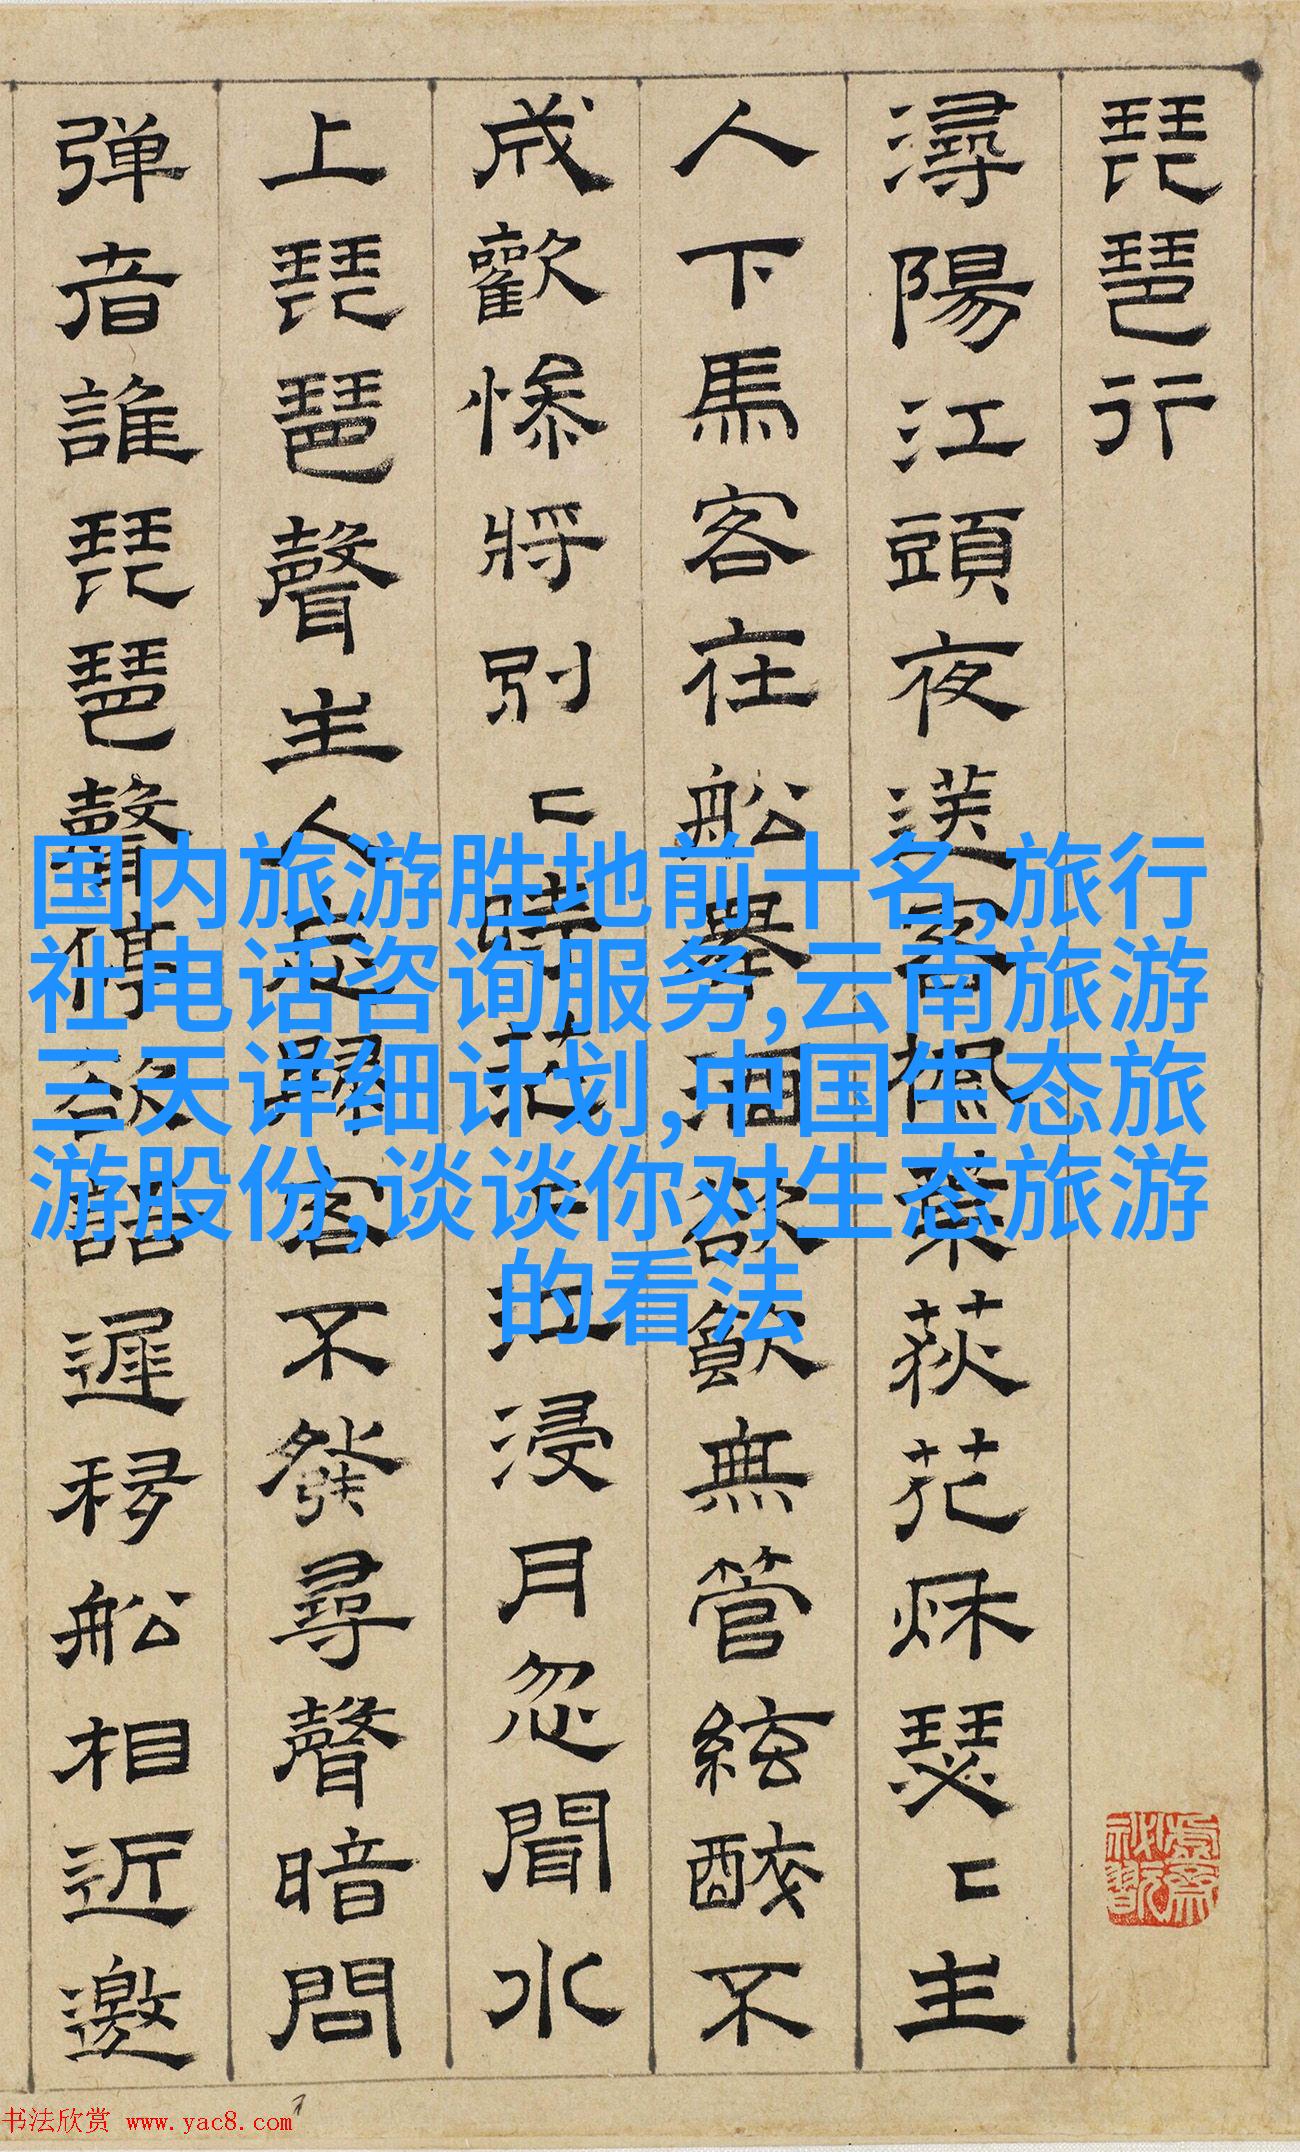 琵琶行
潯陽江頭夜送客楓葉荻花秌瑟〻主
人下馬客在船舉酒欲飲無管絃醉不
成歡慘將別〻時茫〻江浸月忽聞水
上琵琶聲主人忘歸客不發尋聲暗問
弹者誰琵琶聲停欲語遲移船相近邀
国内旅游胜地前十名,旅行
社电话咨询服务,云南旅游
三天详细计划,中国生态旅
游股份,谈谈你对生态旅游
的看法
书法欣赏 www.yac8.com